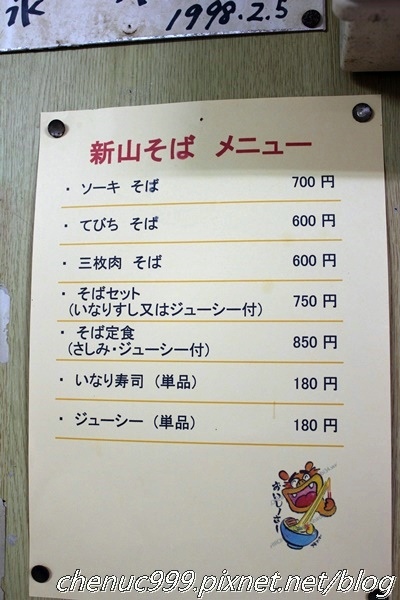 1998.2.5
新山そば メニュー
・ ソーキ そば 700 円
・ てびち そば 600 円
・ 三枚肉 そば 600 円
・ そばセット
(いなりすし又はジューシー付) 750 円
・ そば定食
(さしみ・ジューシー付) 850 円
・ いなり寿司 (単品) 180 円
・ ジューシー (単品) 180 円
おいしいさー
chenuc999.pixnet.net/blog